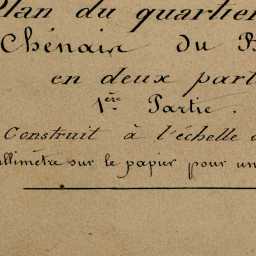 Plan du quartier
Chénaix du
en deux part
1ère Partie.
Construit à l'échelle d
illimètre sur le papier pour un